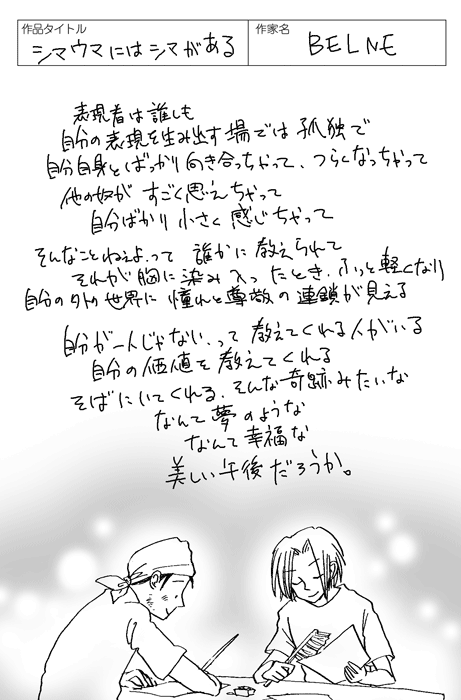 作品タイトル
シマウマにはシマがある
作家名
BELNE
表現者は誰しも
自分の表現を生み出す場では孤独で
自分自身とばっかり向き合っちゃって、つらくなっちゃって
他の奴が すごく思えちゃって
自分ばかり小さく感じちゃって
そんなことねぇよ、って 誰かに教えられて
それが胸に染み入ったとき、ふっと軽くなり
自分の外の世界に 憧れと尊敬の連鎖が見える
自分が一人じゃない、って 教えてくれる人がいる
自分の価値を教えてくれる
そばにいてくれる、そんな奇跡みたいな
なんて夢のような
なんて幸福な
美しい午後だろうか。